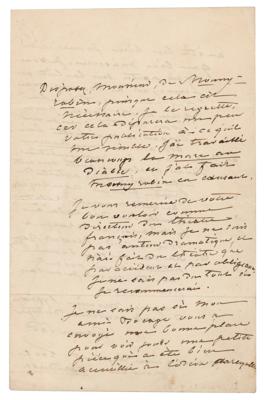 Disposez, Monsieur, de Mouny-
robin, puisque cela est
nécessaire. Je le regrette,
car cela déparera un peu
votre publication à ce qu'il
me semble. J'ai travaillé
beaucoup la mare au
Diable, et j'ai fait
mouny robin en causant.
Je vous remercie de votre
bon vouloir comme
directeur du théâtre
français, mais je ne suis
pas auteur dramatique, je
n'ai fait du théâtre que
par accident et pas obligeance
je ne sais pas du tout si
je recommencerai.
Je ne sais pas si mon
ami Bocage vous a
envoyé une bonne place
pour voir jouer une petite
pièce qui a été bien
accueillie à l'odéon